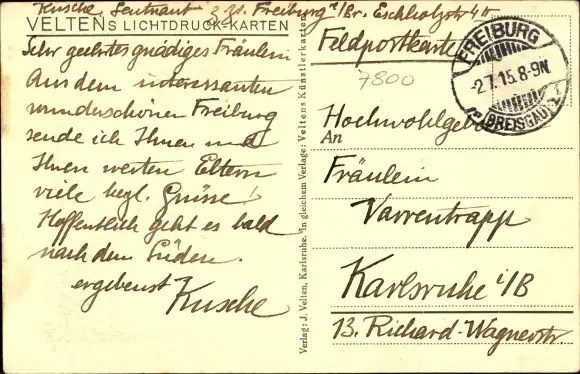 Kusche, Leutnant z. Zt. Freiburg i/Br. Eschholzstr 40
VELTENS LICHTDRUCK-KARTEN
Sehr geehrtes gnädiges Fräulein
Aus dem interessanten
wunderschönen Freiburg
sende ich Ihnen und
Ihren werten Eltern
viele herzl. Grüsse!
Hoffentlich geht es bald
nach dem Süden.
ergebenst Kusche
Verlag: J. Velten, Karlsruhe. In gleichem Verlage: Veltens Künstlerkarten
Feldpostkarte
7800
FREIBURG
-2.7.15.8-9N.
(BREISGAU)
Hochwohlgeb
An
Fräulein
Varrentrapp
Karlsruhe i/B
13. Richard-Wagnerstr.